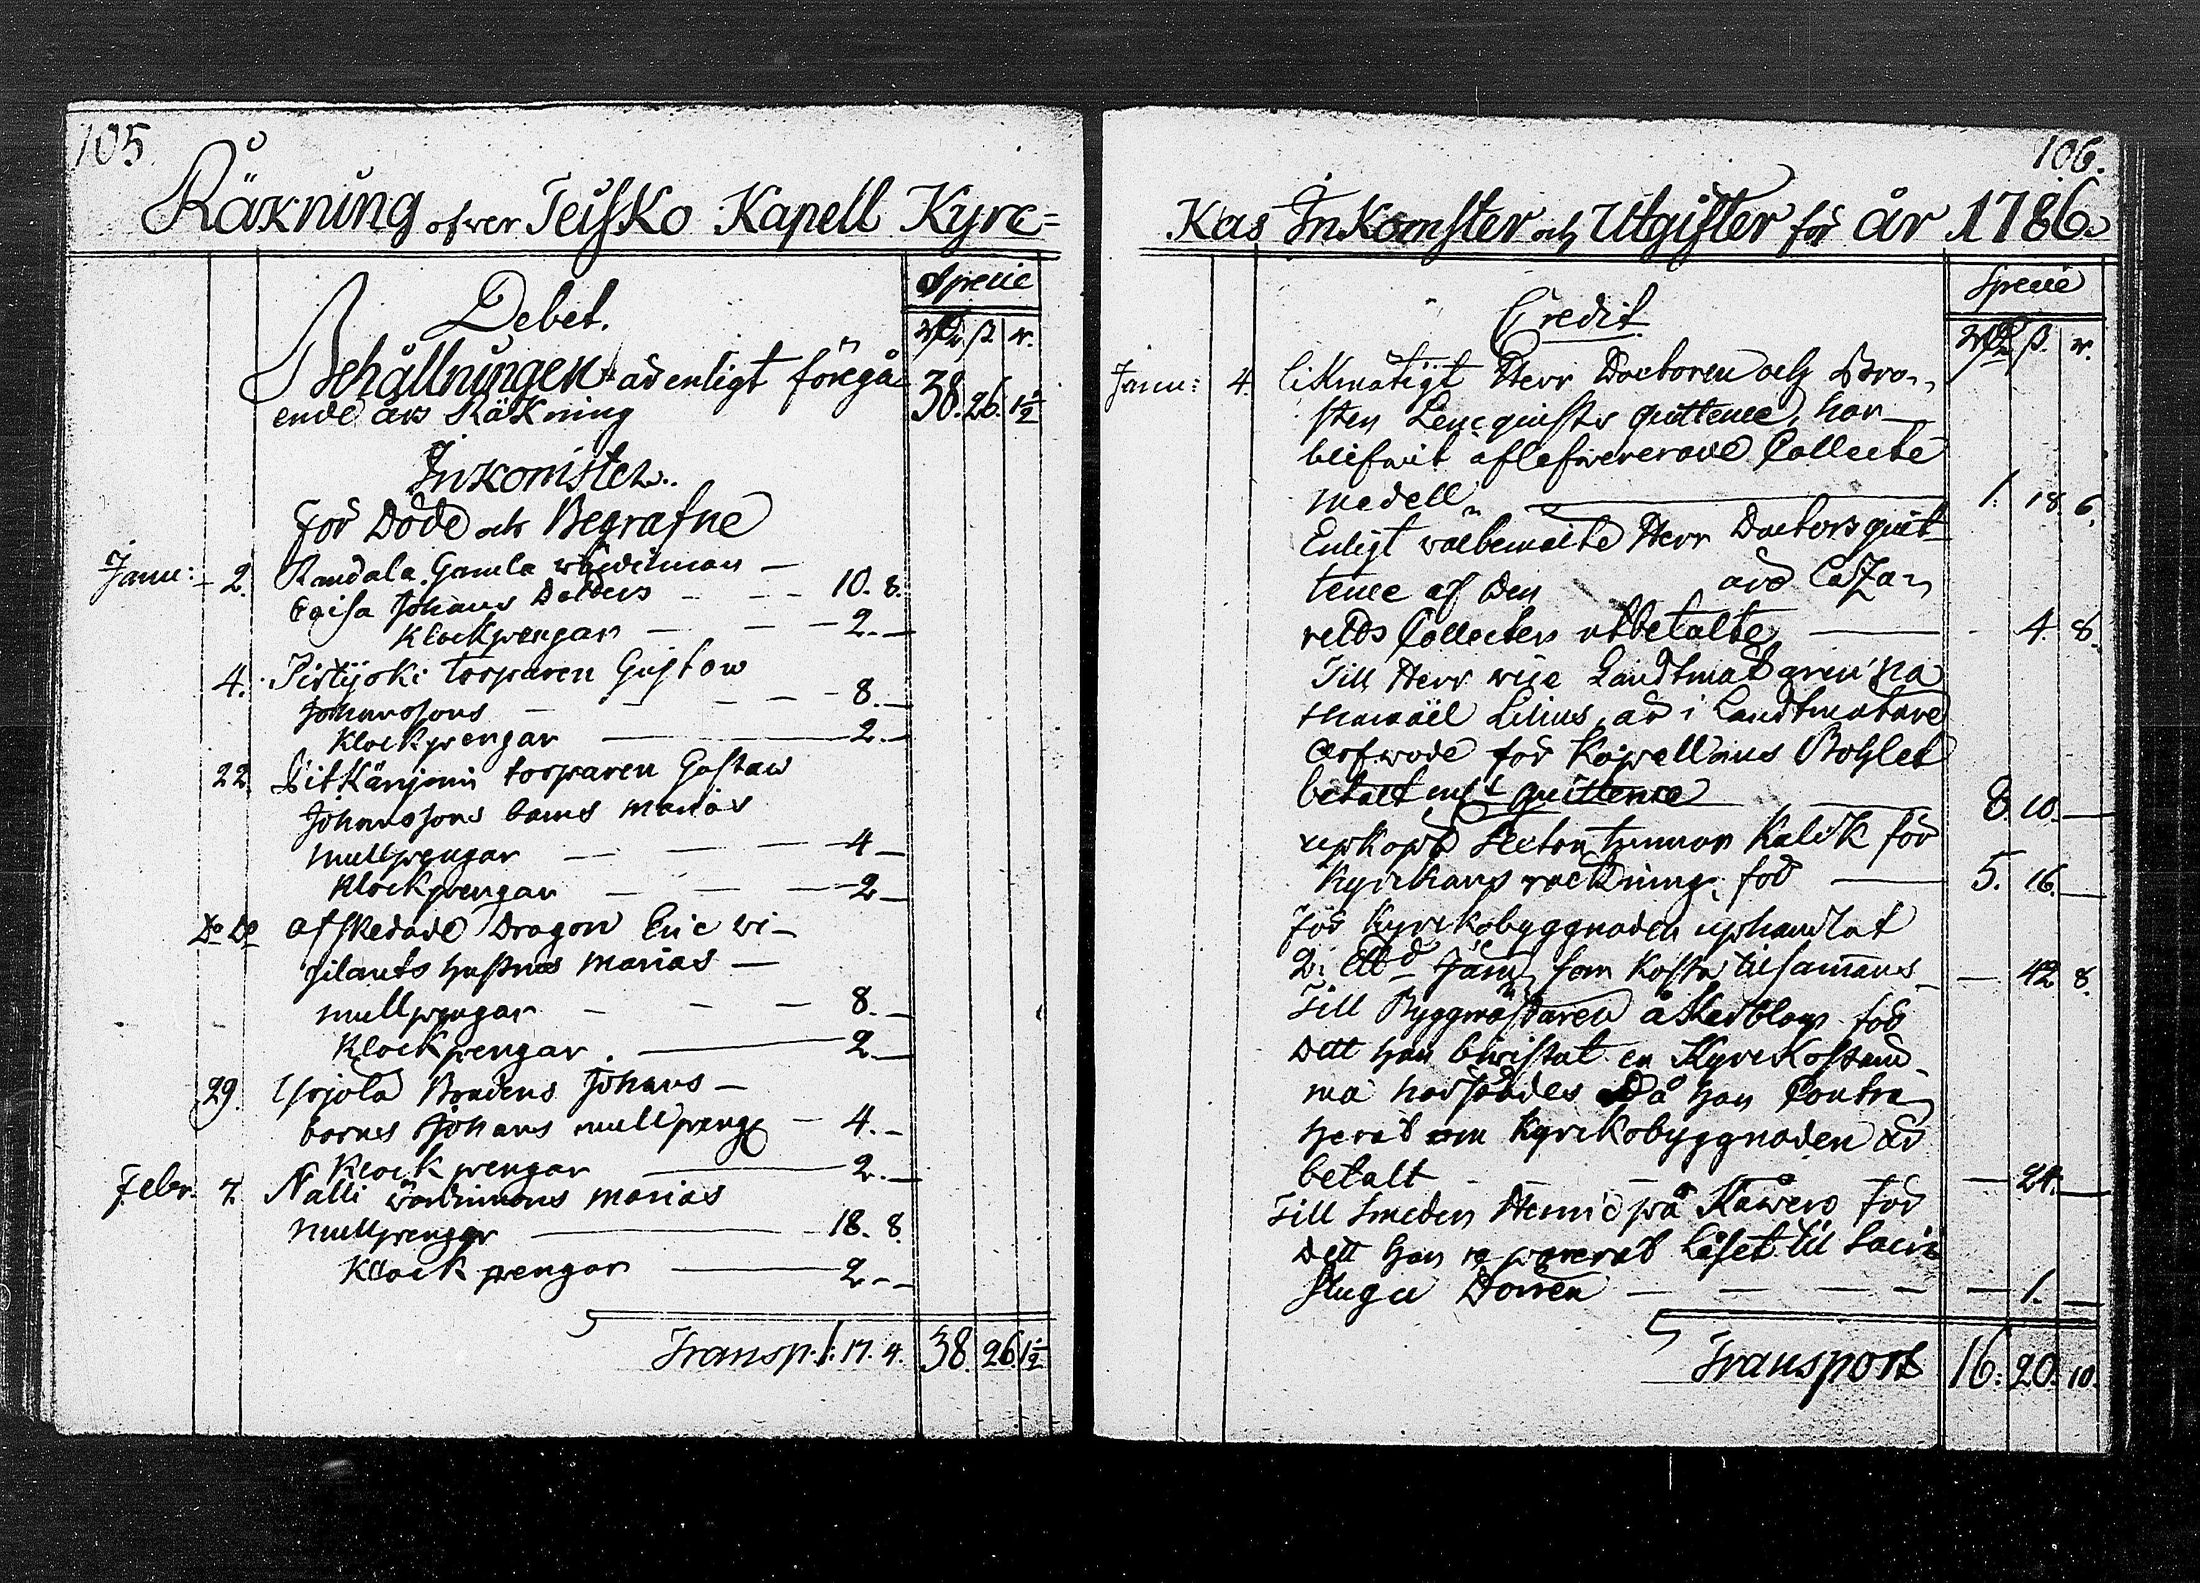 105
Räkning ofver Teisko Kapell Kyrc=
Specie
Debet.
Rdr ß. r.
Behållningen är enligt föregå
ende års Räkning 38. 26. 1½
Inkomster.
För Döde och Begrafne
Janu: 2. Randala Gamla
Caisa Johans Dotters 10. 8.
Klockpengar 2.
4. torparen Gustaw
Johanssons 8.
Klockpengar 2.
22. torparen Gustaw
Johanssons barns Marias
mullpengar 4
Klockpengar 2
Do Do afskedade Dragon Eric Wi-
gilants hustrus Marias
mullpengar 8.
Klockpengar. 2.
29. Yrjola Bondens Johans
barnes Johans mullpeng 4.
Klockpengar 2.
Febr. 7. Nalli Marias
mullpengar 18. 8.
Klockpengar 2.
Transp. 1: 17. 4. 38. 26. 1½
106.
Kas Inkomster och Utgifter för år 1786.
Specie
Credit.
Rdr ß. r.
Janu: 4. likmätigt Herr Doctoren och Pro-
sten Lencquists quittence, har
blifwit aflefwererade Collecte
medell 1. 18. 6.
Enligt wälbemälte Herr Doctors quit-
tence af den
retds Collecten utbetalte 4. 8.
Till Herr vice Landtmätaren Na
thanaël Lilius, är i Landtmätare
Arfwode för Kapellans Bohlet
betalt quittence 8. 10.
upköpt tunnor Kalck för
kyrckans rackning, för 5. 16.
För Kyrckobyggnaden uphandlat
2: som kosta tilsamans 42. 8.
Till Byggmästaren för
Dett han bewistat en Kyrckostäm
ma härstädes Då han Contra
herat om Kyrckobyggnaden är
betalt 24.
Till Smeden Henric på för
Dett han reparerat Låset til Sacri
stugu Dörren 1.
Transport 16. 20. 10.